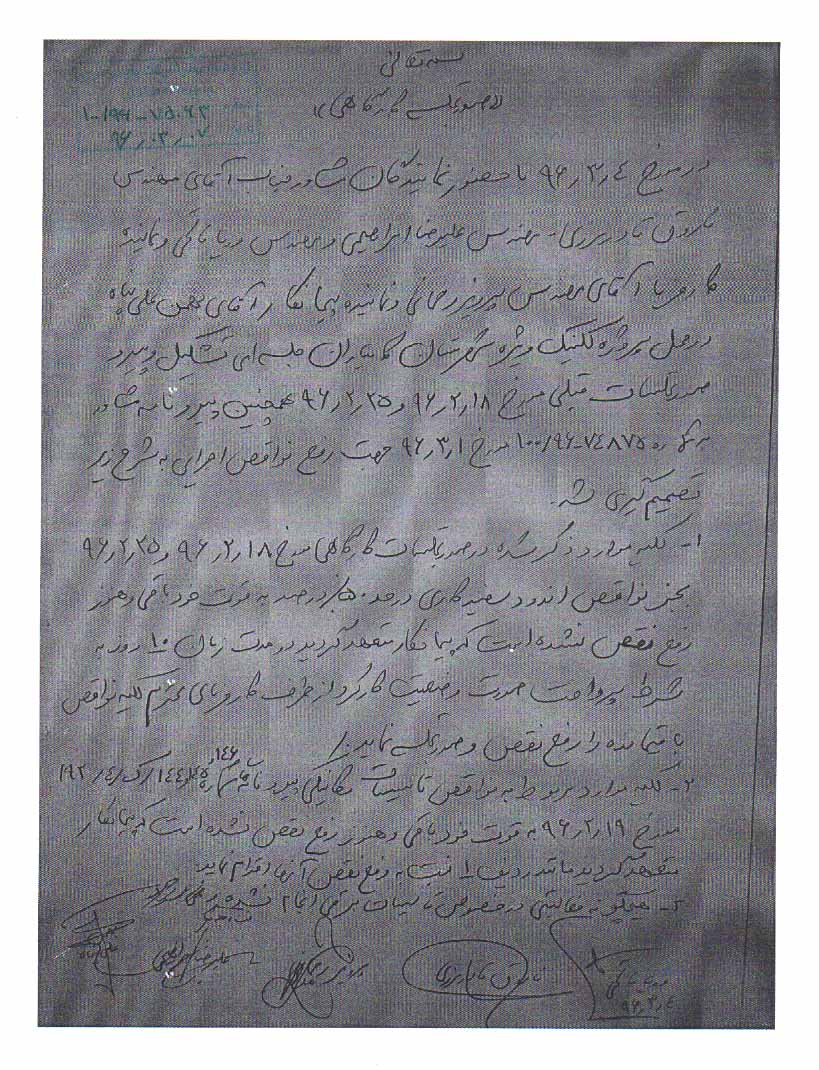 بسمه تعالی
«صورتجلسه کارگاهی»
۱-۱۹۹-۷۵۰۶۳
۹۶٫۰۳٫۰۷
در مورخ ۹۶٫۳٫٤ با حضور نمایندگان مشاور جناب آقای مهندس
فاروق نادربرزی - مهندس علیرضا ابراهیمی و مهندس دریا بائی و نماینده
کارفرما آقای مهندس پرویز رحمانی و نماینده پیمانکار آقای بهمن علی پناه
در محل پروژه کلنیک ویژه شهرستان کامیاران جلسه ای تشکیل و پیرو
صورتجلسات قبلی مورخ ۹۶٫۲٫۱۸ و ۹۶٫۲٫۲۵ همچنین پیرو نامه مشاور
به شماره ۷٤۸۷۵-۱۰۰/۹۶ مورخ ۹۶٫۳٫۱ جهت رفع نواقص اجرایی به شرح زیر
تصمیم گیری شد.
۱- کلیه موارد ذکر شده در صورتجلسات کارگاهی مورخ ۹۶٫۲٫۱۸ و ۹۶٫۲٫۲۵
بجز نواقص اندود سفیدکاری در حد ۵۰٪ درصد به قوت خود باقی و هنوز
رفع نقص نشده است که پیمانکار متعهد گردید در مدت زمان ۱۰ روز به
شرط پرداخت صورت وضعیت کارکرد از طرف کارفرمای محترم کلیه نواقص
باقیمانده را رفع نقص و صورتجلسه نماید./
۲- کلیه موارد مربوط به نواقص تاسیسات مکانیکی پیرو نامه شماره
مورخ ۹۶٫۲٫۱۹ به قوت خود باقی و هنوز رفع نقص نشده است که پیمانکار
متعهد گردید مانند ردیف ۱ نسبت به رفع نقص آنها اقدام نماید.
۳- هیچگونه فعالیتی در خصوص تاسیسات برقی انجام نشده
علیرضا ابراهیمی
پرویز رحمانی
فاروق نادربرزی
۹۶٫۳٫٤